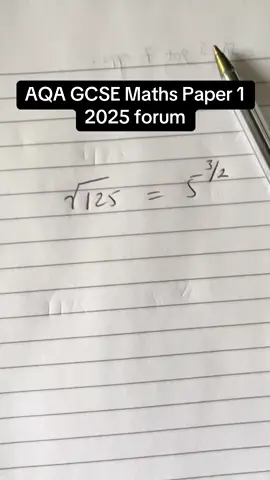 AQA GCSE Maths Paper 1
2025 forum
√125 = 5^3/2